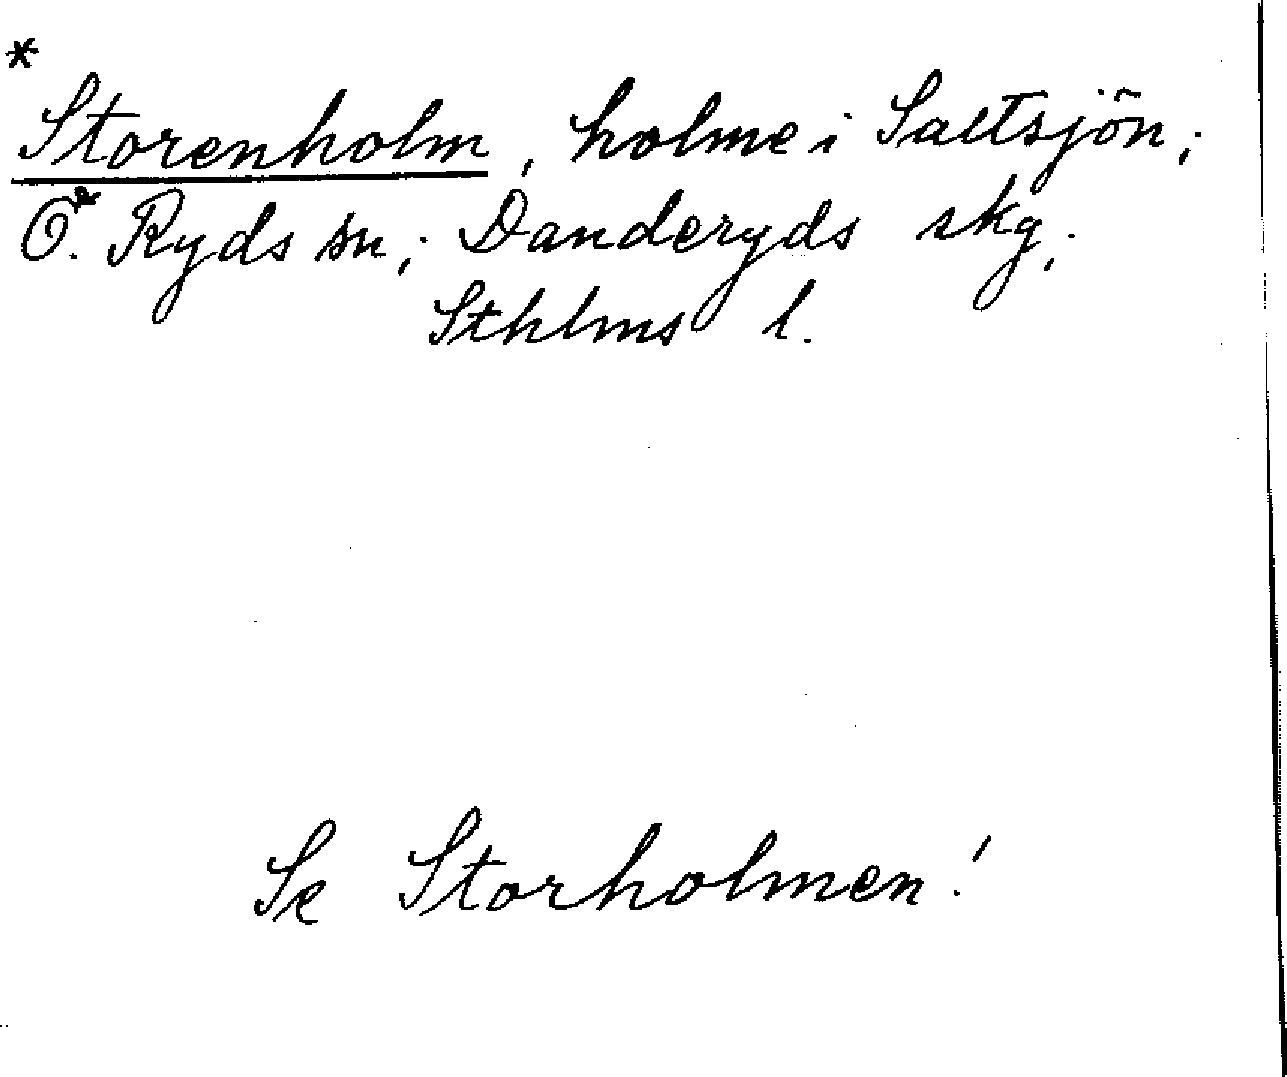 *
Storenholm, holme i Saltsjön;
Ö. Ryds sn; Danderyds skg;
Sthlms l.
Se Storholmen!